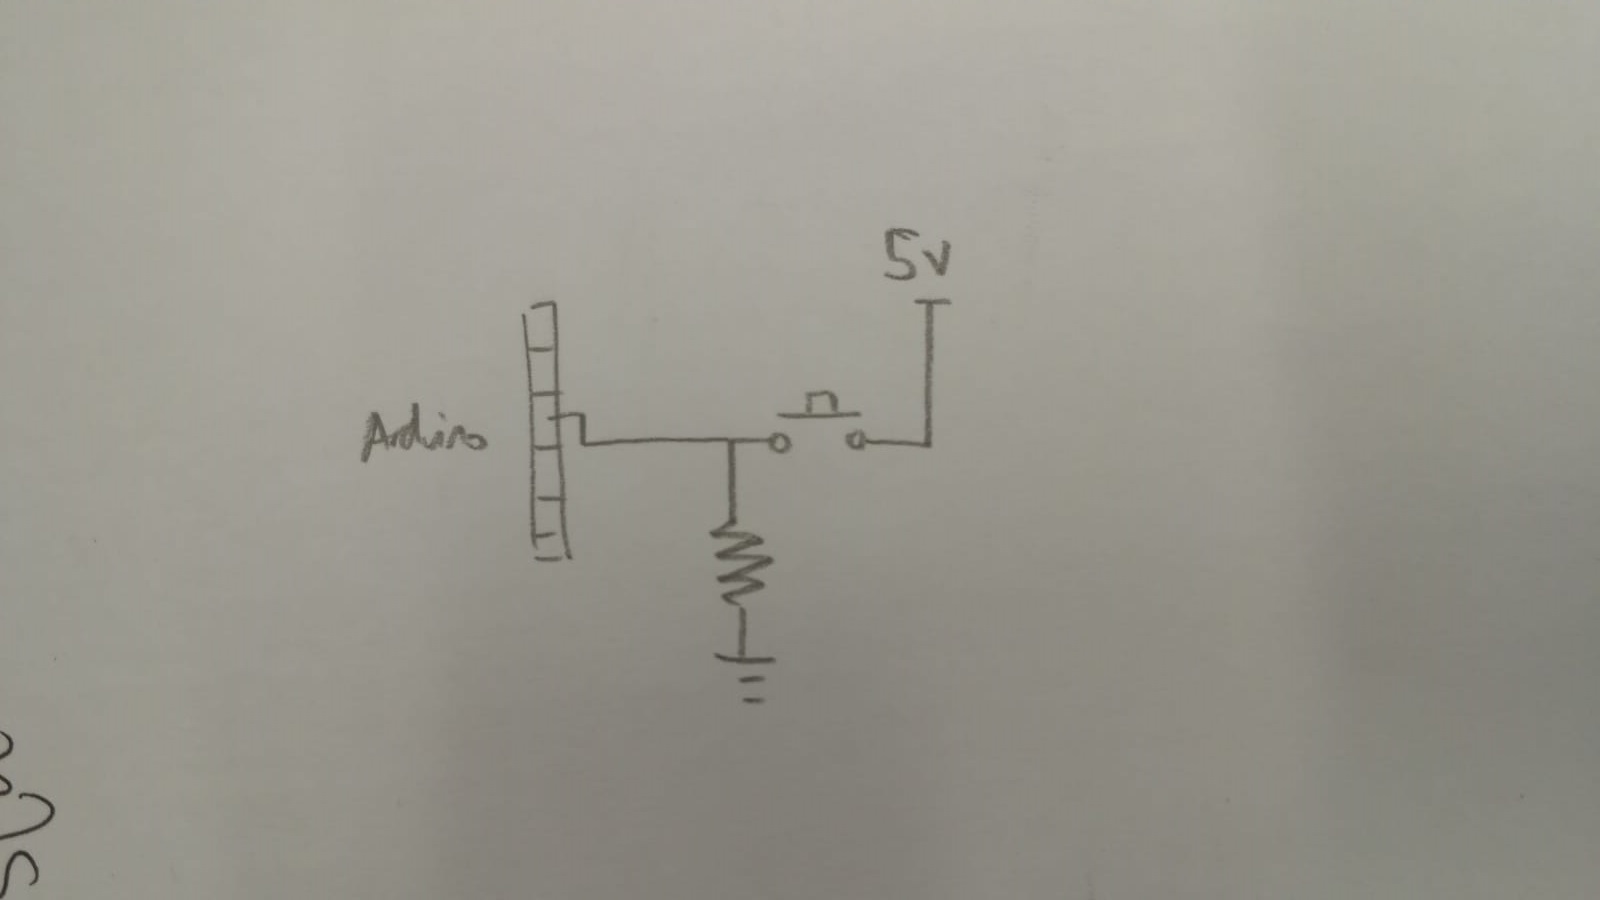 5v
Arduino